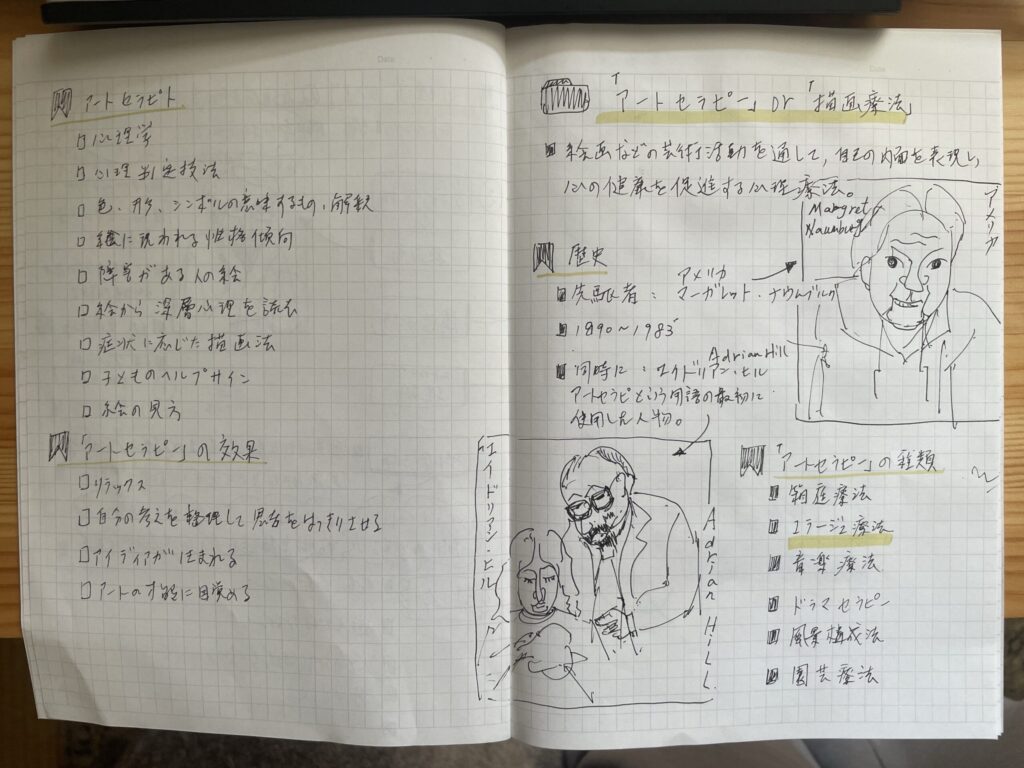 Date
アートセラピト
心理学
心理判定技法
色、形、シンボルの意味するもの、解釈
絵に現われる性格傾向
障害がある人の絵
絵から深層心理を読む
症状に応じた描画法
子どものヘルプサイン
絵の見方
「アートセラピー」の効果
リラックス
自分の考えを整理して思考をはっきりさせる
アイディアが生まれる
アートの才能に目覚める
Date
「アートセラピー」or「描画療法」
絵画などの芸術活動を通して、自己の内面を表現し、
心の健康を促進する心理療法。
Margret
Naumburg
アメリカ
歴史
アメリカ
先駆者：マーガレット・ナウムブルグ
1890〜1983
Adrian Hill
同時に：エイドリアン・ヒル
アートセラピという用語の最初に
使用した人物。
エイドリアン・ヒル
Adrian HiLL
「アートセラピー」の種類
箱庭療法
コラージュ療法
音楽療法
ドラマセラピー
風景構成法
園芸療法